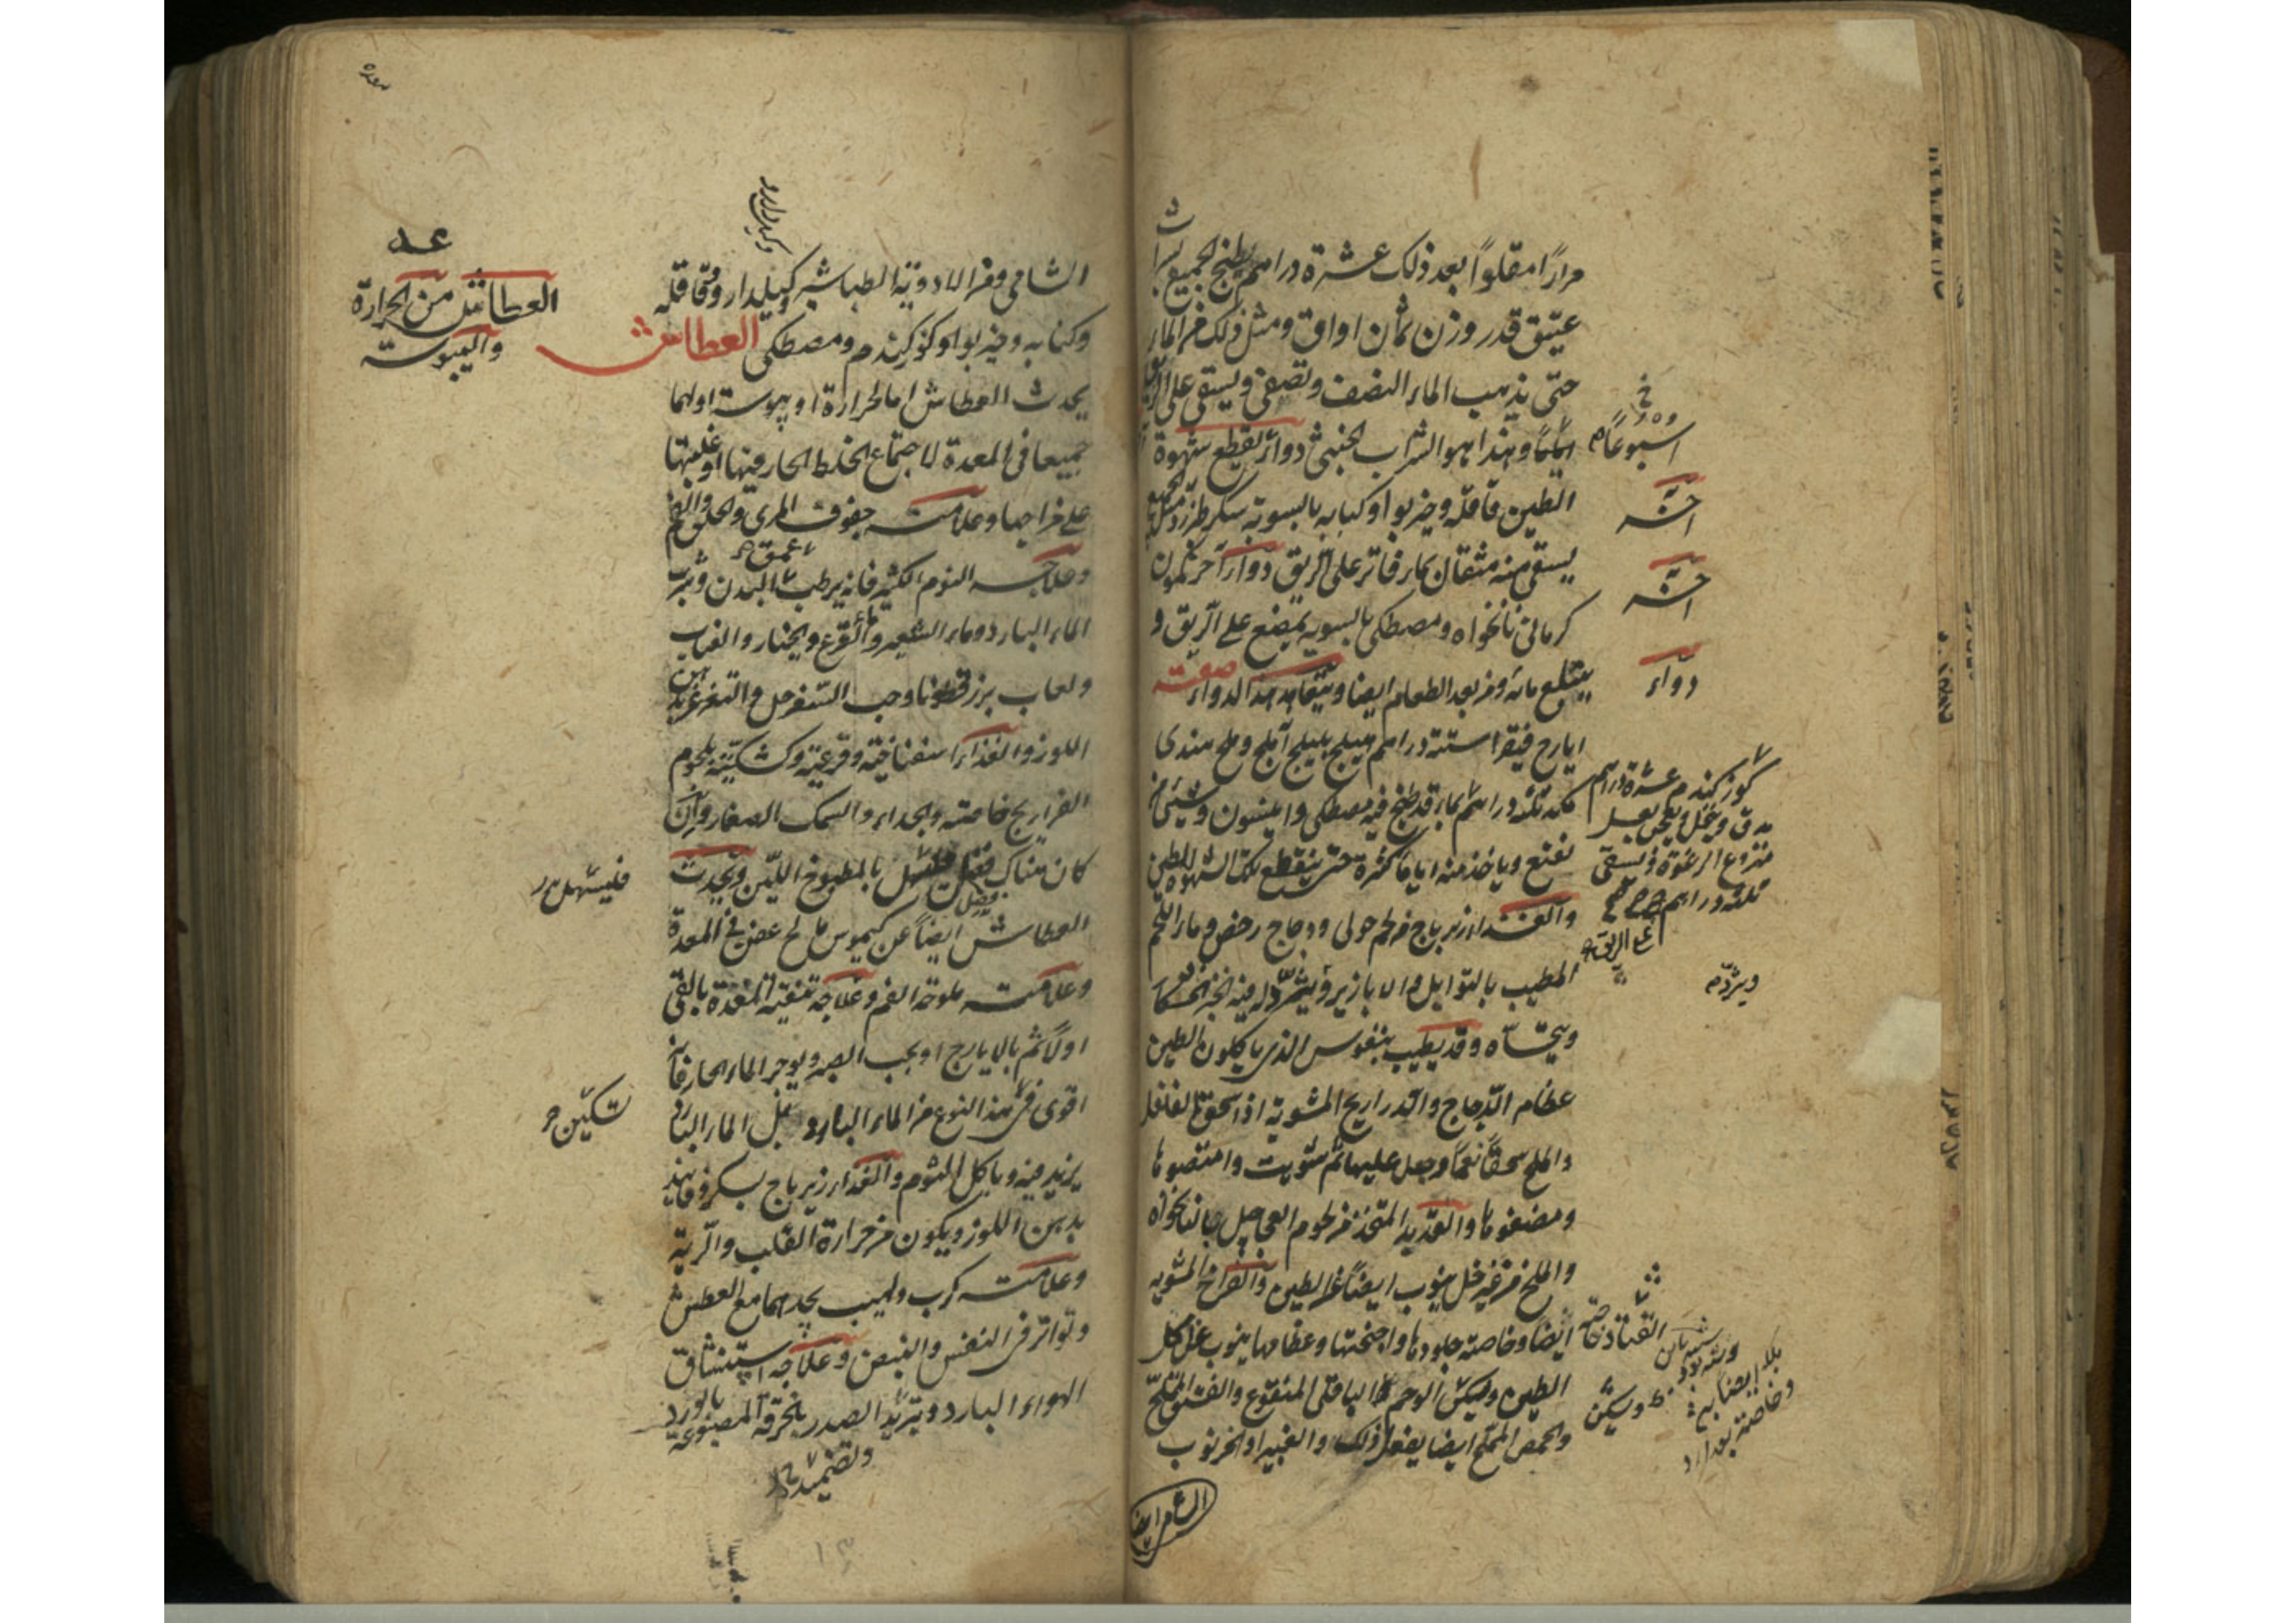 مرارًا مقلوًا بعد ذلك عشرة دراهم يطبخ الجميع بشراب
عتيق قدر وزن ثمان اواق ومثل ذلك من الماء
حتى يذهب الماء النصف وتصفى ويسقى على الريق
ايامًا وهذا هو الشراب دواء لقطع شهوة
الطين قاقلة وخيربوا وكبابه بالسوية سكر طبرزد مثل الجميع
يسقى منه مثقال بماء فاتر على الريق دواء آخر كمون
كرمانى نانخواه ومصطكى بالسويه يمضغ على الريق و
يبتلع مائه ومن بعد الطعام ايضا ويتعاهد هذا الدواء صفته
ايارج فيقرا ستة دراهم هليلج بليلج آملج وملح هندى
ثلثة دراهم بماء قد طبخ فيه مصطكى وانيسون وشئ من
نعنع وياخذ منه اياما كثيرة حتى ينقطع تلك الشهوة للطين
والغذاء زيرباج من لحم حولى ودجاج رخص وماء اللحم
المطيب بالتوابل والابازير ويثرد له فيه الخبز
ويتحساه وقد يطيب بنفوس الذى ياكلون الطين
عظام الدجاج والدراريج المشوية اذا سحق الفلفل
والملح سحقًا نعمًا وجعل عليها ثم شويت وامتصوها
ومضغوها والقديد المتخذ من لحوم العجاجيل بالنانخواه
والملح من غير خل ينوب ايضًا عن الطين والفراخ المشويه
ايضا وخاصة جلودها واجنحتها وعظامها ينوب عن اكل
الطين وليكن الباقلى المنقوع والفستق المملح
والحمص المملح ايضا يفعل ذلك والغبيرا والخرنوب
الشامى ايضا
اسبوعًا
آخر
آخر
دواء
كوزكندم عشرة دراهم
يدق وينخل ويعجن بعسل
منزوع الرغوة ويسقى
ثلثة دراهم
على الريق
ويثرد
الشامى ومن الادوية الطباشير وكيلدارو وقاقله
وكبابه وخيربوا وكوزكندم ومصطكى العطاش
يحدث العطاش اما لحرارة او يبوسة اولهما
جميعا فى المعدة لاجتماع الخلط الحار فيها او غلبتها
على مزاجها وعلامته جفوف المرى والحلق والفم
وعلاجه النوم الكثير فانه يرطب البدن وشرب
الماء البارد وماء الشعير وماء القرع والخيار
ولعاب بزر قطونا وحب السفرجل والتغرغر بدهن
اللوز والغذاء اسفناخية وقرعية وكشكية بلحوم
الفراريج خاصة والجداء والسمك الصغار وان
كان هناك بالمطبوخ اللين ويحدث
العطاش ايضًا عن كيموس مالح عفن فى المعدة
وعلامته ملوحة الفم وعلاجه تنقية المعدة بالقئ
اولًا ثم بالايارج او بحب الصبر ويوجر الماء الحار فانه
اقوى فى هذا النوع من الماء البارد بل الماء البارد
يزيد فيه وياكل الثوم والغذاء زيرباج بسكر وفانيذ
بدهن اللوز ويكون من حرارة القلب والرية
وعلامته كرب ولهيب يجدهما مع العطش
وتواتر فى النفس والنبض وعلاجه استنشاق
الهواء البارد وتبريد الصدر بالخرقة المصبوغة بالورد
وتضميد
العطاش من الحرارة
واليبوسة
فليسهل
تسكين